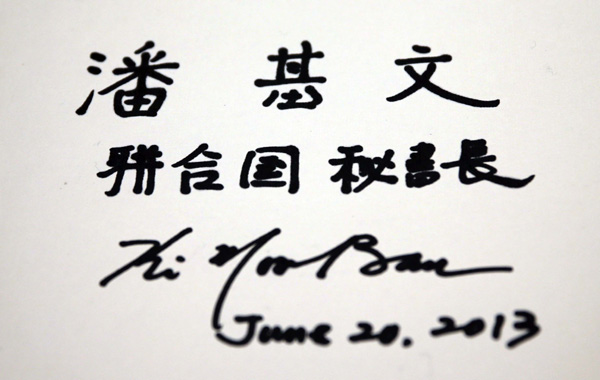 潘 基 文
联合国 秘書長
Ki Moon Ban
June 20, 2013